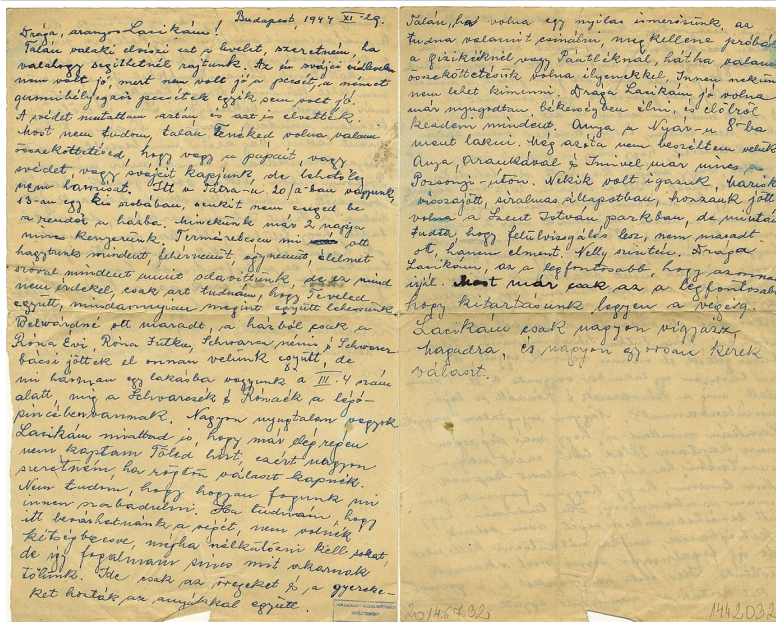 Budapest, 1944 XI-29.
Drága, aranyos Lacikám!
Talán valaki elviszi ezt a levelet, szeretném, ha
valahogy segíthetnél rajtunk. Az én svájci védlevelem
nem volt jó, mert nem volt jó a pecsét, a német
gumibélyegzős pecsétek egyik sem volt jó.
A védet mutattam aztán és azt is elvették.
Most nem tudom, talán Tenéked volna valami
összeköttetésed, hogy vagy a pápait, vagy
svédet, vagy svájcit kapjunk, de lehetőleg
nem hamisat. Itt a Tátra-u. 20/a-ban vagyunk,
13-an egy kis szobában, senkit nem enged be
a rendőr a házba. Minekünk már 2 napja
nincs kenyerünk. Természetesen mi ott
hagytunk mindent, fehérneműt, ágyneműt, élelmet
szóval mindent amit odavittünk, de ez mind
nem érdekel, csak azt tudnám, hogy Teveled
együtt, mindannyian megint együtt lehessünk.
ott maradt, a házból csak a
Róna Évi, Róna Jutka, Schwarcz néni és Schwarcz
bácsi jöttek el onnan velünk együtt, de
mi hárman egy lakásba vagyunk a III. 4 szám
alatt, míg a Schwarczék és Rónáék a lépcső-
pincében vannak. Nagyon nyugtalan vagyok
Lacikám miattad is, hogy már elég régen
nem kaptam Tőled hírt, ezért nagyon
szeretném ha rögtön választ kapnék.
Nem tudom, hogy hogyan fogunk mi
innen szabadulni. Ha tudnám, hogy
itt bevárhatnánk a végét, nem volnék
kétségbeesve, mégha nélkülözni kell sokat,
de így fogalmam sincs mit akarnak
tőlünk. Ide csak az öregeket és a gyereke-
ket hozták az anyákkal együtt.
Talán, ha volna egy nyilas ismerősünk, az
tudna valamit csinálni, megkellene próbálni
a fizikéknél vagy Pautléknál, hátha valami
összeköttetésük volna ilyenekkel. Innen nekünk
nem lehet kimenni. Drága Lacikám jó volna
már nyugodtan békességben élni, és előlről
kezdeni mindent. Anya a Nyár-u 8-ba
ment lakni. Még azóta nem beszéltem velük
Anya, Arankával és Imivel már nincs a
Pozsonyi-úton. Nekik volt igazuk,
visszajött, siralmas állapotban, hozzánk jött
volna a Szent István parkban, de miután
tudta hogy felülvizsgálás lesz, nem maradt
ott, hanem elment. Nelly szintén. Drága
Lacikám, az a legfontosabb, hogy azonnal
írjál. Most már csak az a legfontosabb
hogy kitartásunk legyen a végéig.
Lacikám csak nagyon vigyázz
magadra, és nagyon gyorsan kérek
választ.
20/46792
1442032